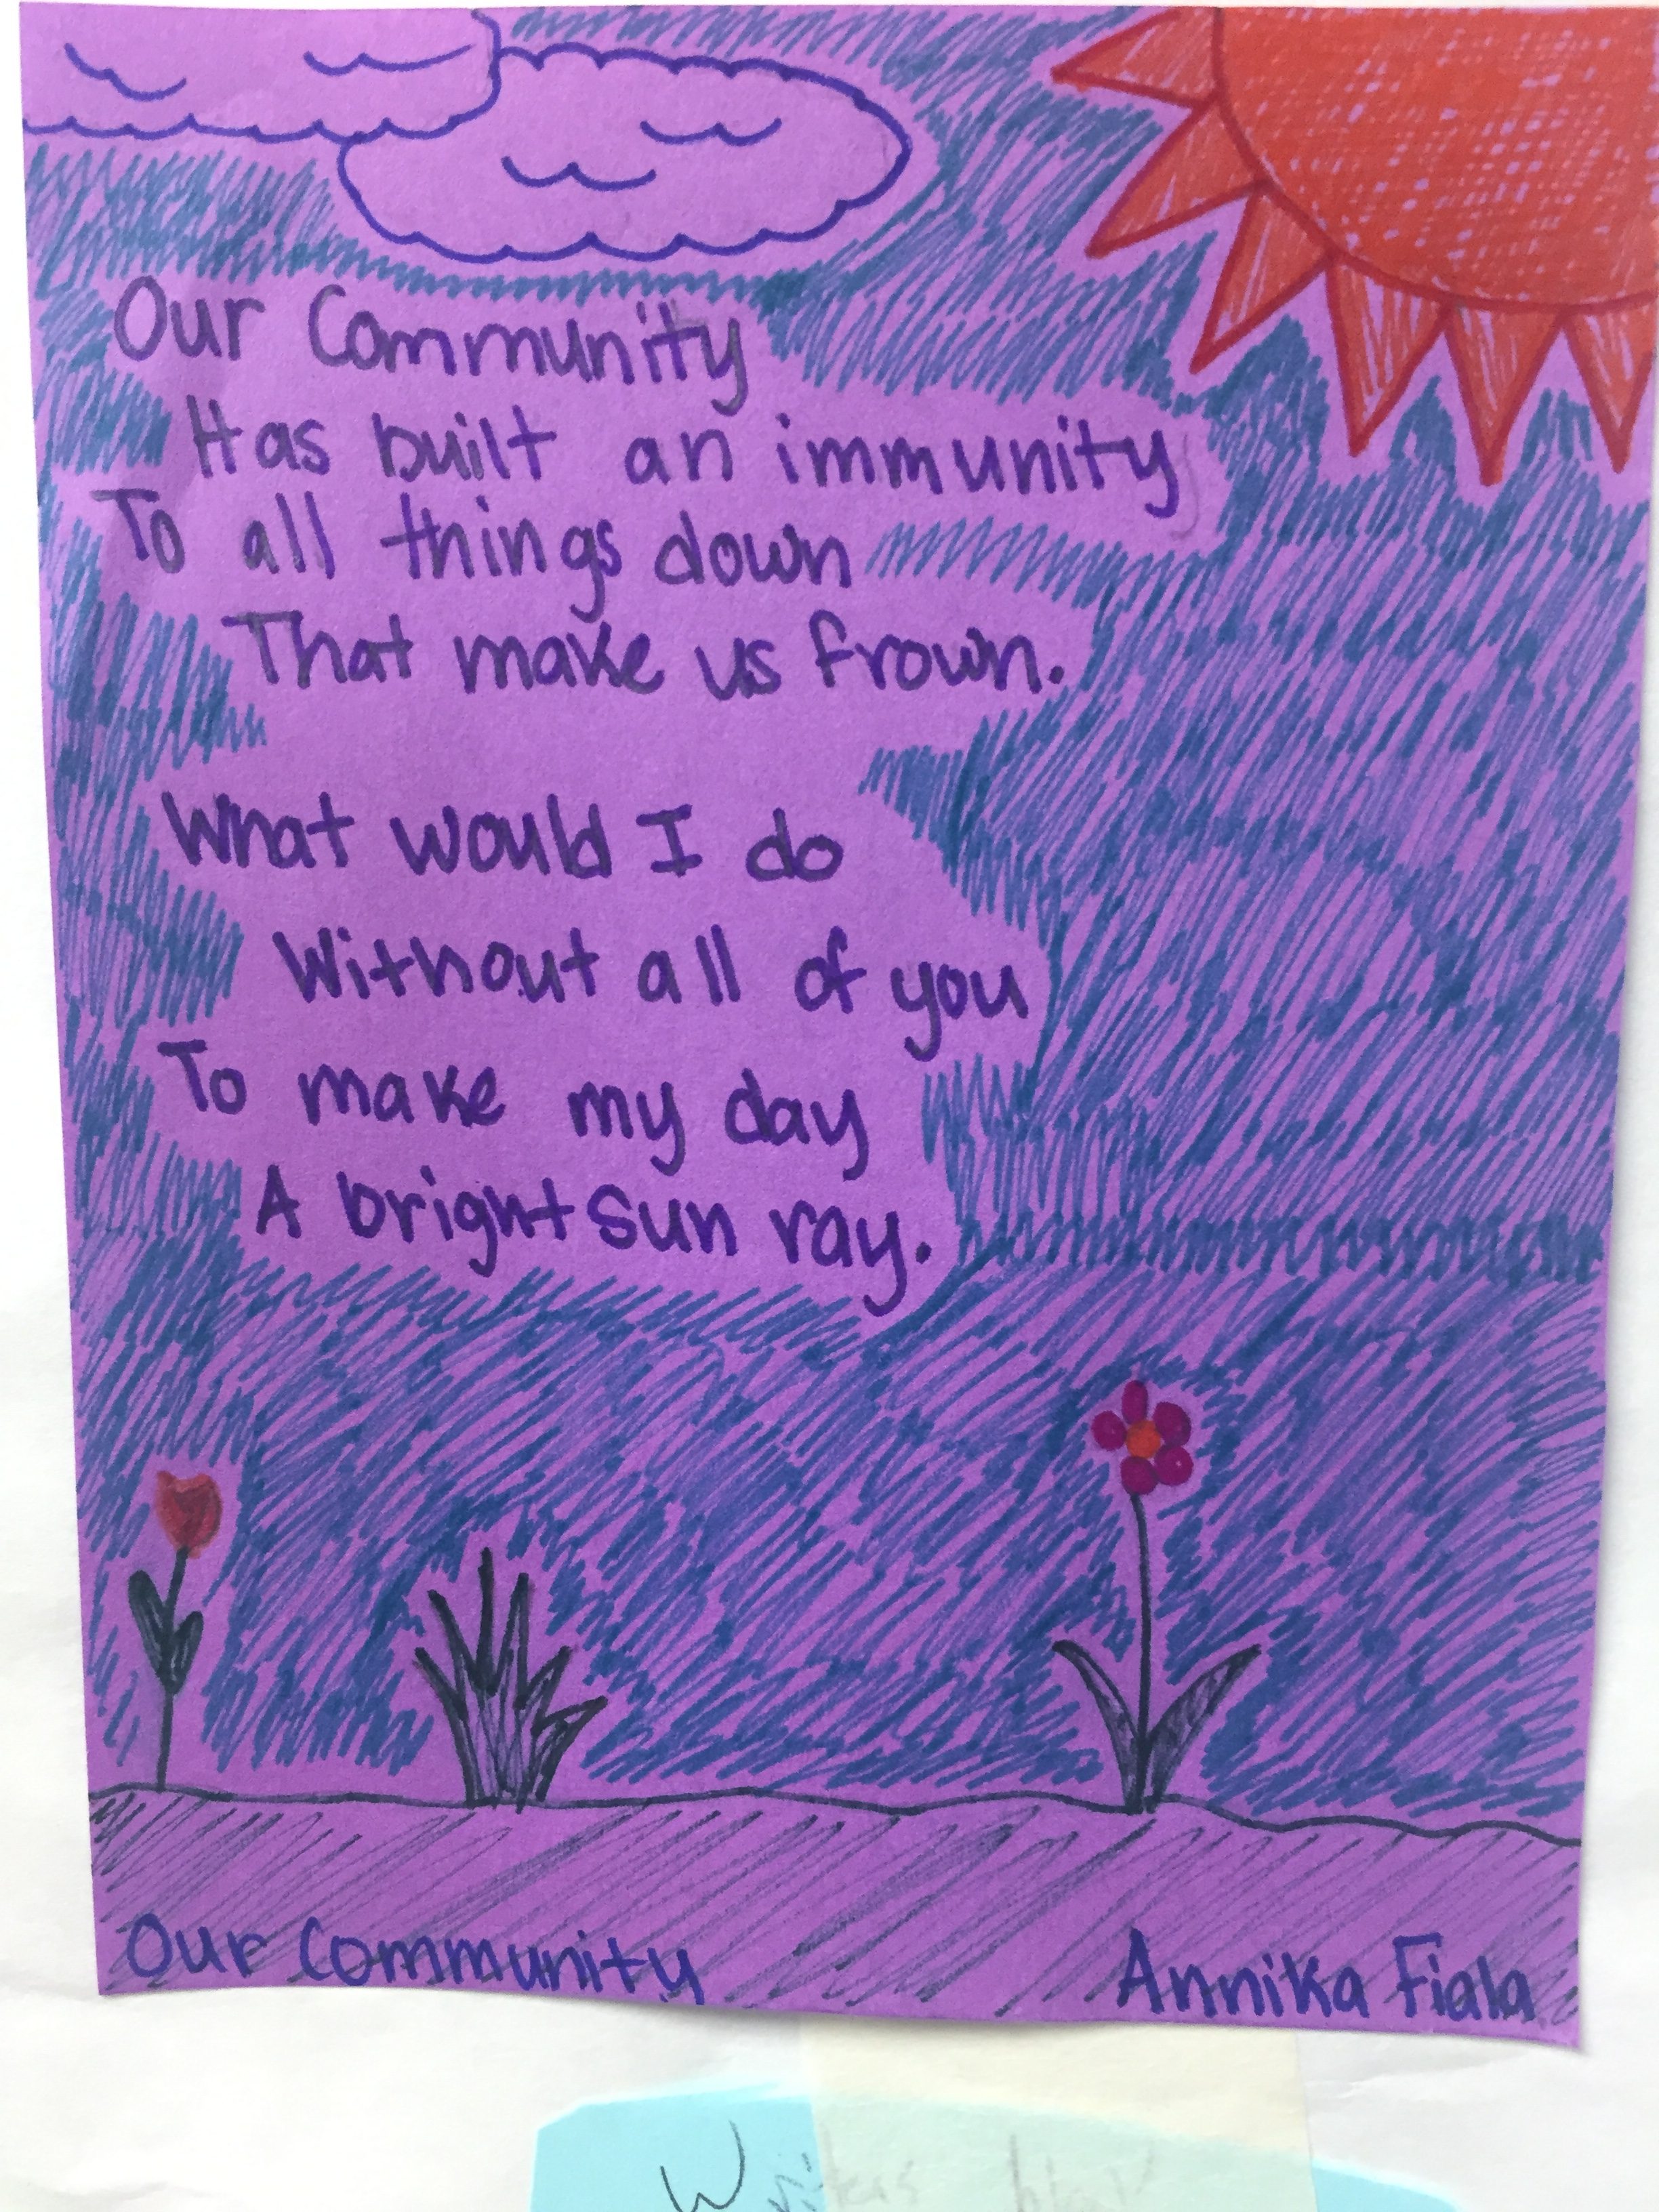 Our Community
Has built an immunity
To all things down
That make us frown.
What would I do
Without all of you
To make my day
A bright sun ray.
Our Community
Annika Fiala